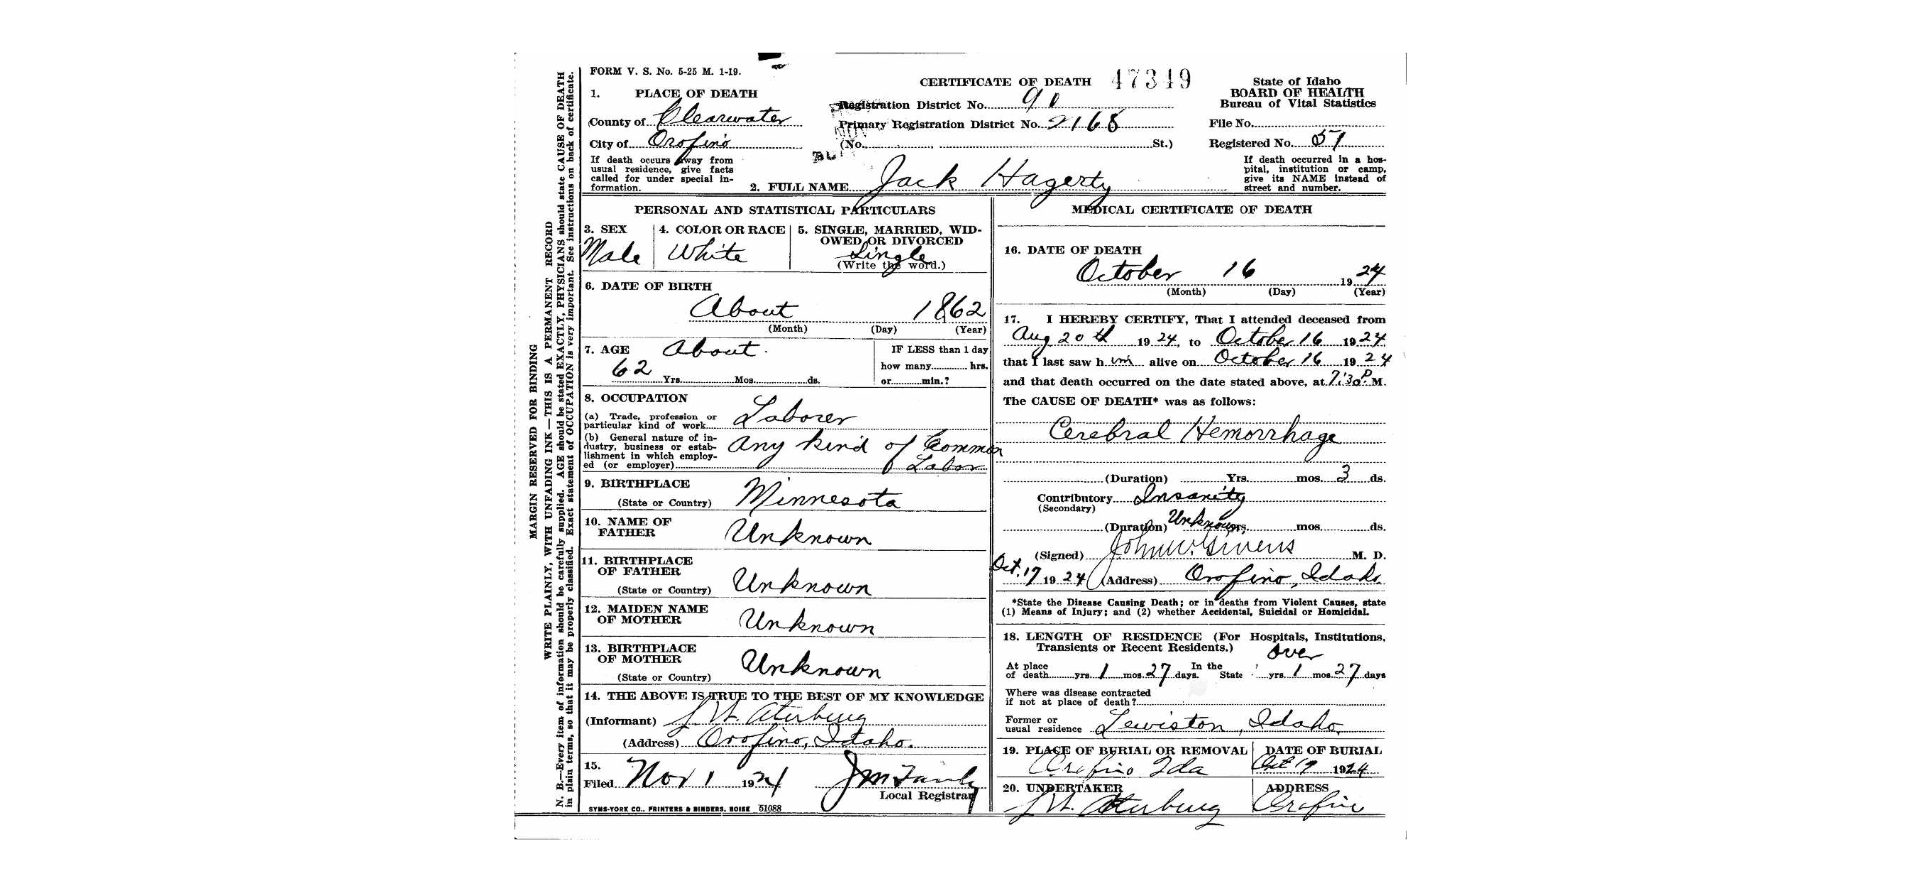 FORM V. S. No. 5-25 M. 1-19.
CERTIFICATE OF DEATH 47349
State of Idaho
BOARD OF HEALTH
Bureau of Vital Statistics
1. PLACE OF DEATH
County of Clearwater
City of Orofino
Registration District No. 90
Primary Registration District No. 2168
(No. St.)
File No.
Registered No. 57
If death occurs away from
usual residence, give facts
called for under special in-
formation.
2. FULL NAME Jack Hagerty
If death occurred in a hos-
pital, institution or camp,
give its NAME instead of
street and number.
PERSONAL AND STATISTICAL PARTICULARS
3. SEX
Male
4. COLOR OR RACE
White
5. SINGLE, MARRIED, WID-
OWED OR DIVORCED
Single
(Write the word.)
6. DATE OF BIRTH
About 1862
(Month) (Day) (Year)
7. AGE About
62
Yrs. Mos. ds.
IF LESS than 1 day
how many hrs.
or min.?
8. OCCUPATION
(a) Trade, profession or
particular kind of work Laborer
(b) General nature of in-
dustry, business or estab-
lishment in which employ-
ed (or employer)
any kind of Common
Labor
9. BIRTHPLACE
(State or Country) Minnesota
10. NAME OF
FATHER Unknown
11. BIRTHPLACE
OF FATHER
(State or Country) Unknown
12. MAIDEN NAME
OF MOTHER Unknown
13. BIRTHPLACE
OF MOTHER
(State or Country) Unknown
14. THE ABOVE IS TRUE TO THE BEST OF MY KNOWLEDGE
(Informant)
(Address) Orofino, Idaho.
15.
Filed Nov 1 1924
Local Registrar
SYMS-YORK CO., PRINTERS & BINDERS, BOISE 51088
MEDICAL CERTIFICATE OF DEATH
16. DATE OF DEATH
October 16 1924
(Month) (Day) (Year)
17. I HEREBY CERTIFY, That I attended deceased from
Aug 20th 1924, to October 16 1924
that I last saw him alive on October 16 1924
and that death occurred on the date stated above, at 7:30 P. M.
The CAUSE OF DEATH* was as follows:
Cerebral Hemorrhage
(Duration) Yrs. mos. 3 ds.
Contributory Insanity
(Secondary)
(Duration) Unknown yrs. mos. ds.
(Signed) John W. Givens M. D.
Oct. 17 1924 (Address) Orofino, Idaho
*State the Disease Causing Death; or in deaths from Violent Causes, state
(1) Means of Injury; and (2) whether Accidental, Suicidal or Homicidal.
18. LENGTH OF RESIDENCE (For Hospitals, Institutions,
Transients or Recent Residents.)
over
At place
of death yrs. 1 mos. 27 days. In the
State yrs. 1 mos. 27 days
Where was disease contracted
if not at place of death?
Former or
usual residence Lewiston, Idaho
19. PLACE OF BURIAL OR REMOVAL
Orofino Ida
DATE OF BURIAL
Oct 17 1924
20. UNDERTAKER
ADDRESS
Orofino
MARGIN RESERVED FOR BINDING
WRITE PLAINLY, WITH UNFADING INK—THIS IS A PERMANENT RECORD
N. B.—Every item of information should be carefully supplied. AGE should be stated EXACTLY, PHYSICIANS should state CAUSE OF DEATH
in plain terms, so that it may be properly classified. Exact statement of OCCUPATION is very important. See instructions on back of certificate.